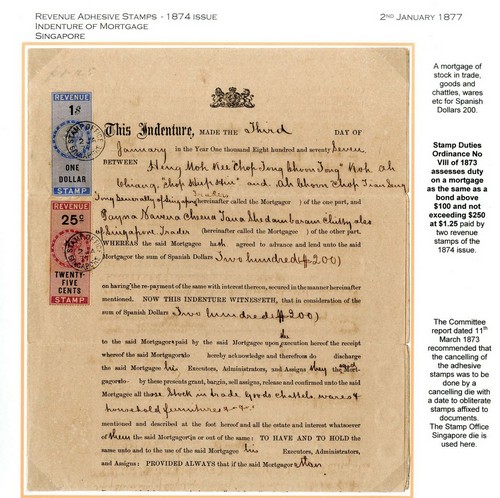 REVENUE ADHESIVE STAMPS - 1874 ISSUE
INDENTURE OF MORTGAGE
SINGAPORE
2ND JANUARY 1877
A mortgage of
stock in trade,
goods and
chattles, wares
etc for Spanish
Dollars 200.
Stamp Duties
Ordinance No
VIII of 1873
assesses duty
on a mortgage
as the same as a
bond above
$100 and not
exceeding $250
at $1.25 paid by
two revenue
stamps of the
1874 issue.
The Committee
report dated 11th
March 1873
recommended that
the cancelling of
the adhesive
stamps was to be
done by a
cancelling die with
a date to obliterate
stamps affixed to
documents.
The Stamp Office
Singapore die is
used here.
REVENUE
1$
ONE
DOLLAR
STAMP
REVENUE
25c
TWENTY-
FIVE
CENTS
STAMP
This Indenture, MADE THE Third DAY OF
January in the Year One thousand Eight hundred and seventy Seven
BETWEEN Heng Moh Kee Chop
and
(hereinafter called the Mortgagor ) of the one part, and
also
of Singapore Trader (hereinafter called the Mortgagee ) of the other part.
WHEREAS the said Mortgagee hath agreed to advance and lend unto the said
Mortgagor the sum of Spanish Dollars Two hundred ($200)
on having the re-payment of the same with interest thereon, secured in the manner hereinafter
mentioned. NOW THIS INDENTURE WITNESSETH, that in consideration of the
sum of Spanish Dollars Two hundred ($200)
to the said Mortgagors paid by the said Mortgagee upon the execution hereof the receipt
whereof the said Mortgagors do hereby acknowledge and therefrom do discharge
the said Mortgagee his Executors, Administrators, and Assigns they the said Mort-
gagors do by these presents grant, bargain, sell assigns, release and confirm unto the said
Mortgagee all those Stock in trade goods chattels, wares &
household furnitures
mentioned and described at the foot hereof and all the estate and interest whatsoever
of them the said Mortgagors in or out of the same: TO HAVE AND TO HOLD the
same unto and to the use of the said Mortgagee his Executors, Administrators,
and Assigns: PROVIDED ALWAYS that if the said Mortgagors